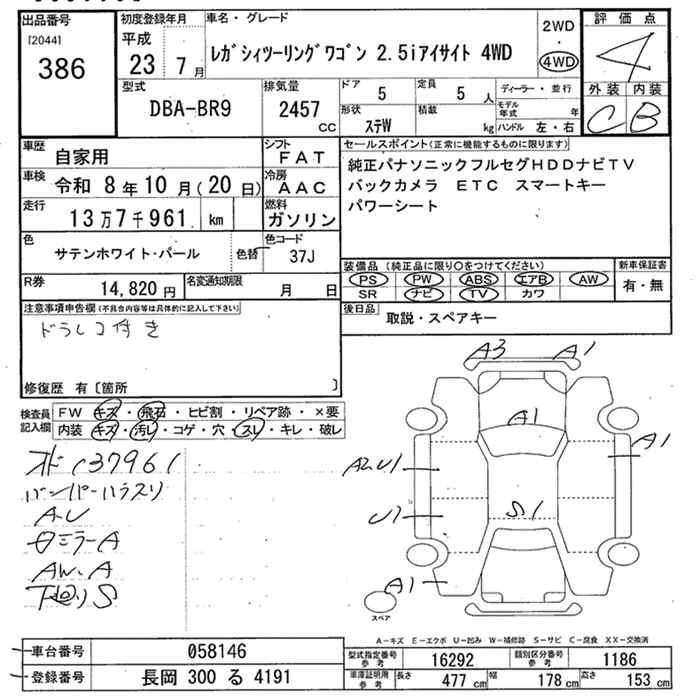 出品番号
[2044]
386
初度登録年月
平成
23 7 月
車名・グレード
ﾚｶﾞｼｨﾂｰﾘﾝｸﾞﾜｺﾞﾝ 2.5iｱｲｻｲﾄ 4WD
2WD
4WD
評価点
4
外装 内装
C B
型式
DBA-BR9
排気量
2457
cc
ドア
5
定員
5 人
形状
ｽﾃW
積載
kg
ディーラー・並行
モデル年式 年
ハンドル 左・右
車歴
自家用
シフト
FAT
車検
令和 8年 10月 (20日)
冷房
AAC
走行
13万7千961 km
燃料
ガソリン
色
サテンホワイト・パール
色替
色コード
37J
R券
14,820 円
名変通知期限
月 日
セールスポイント(正常に機能するものに限ります)
純正パナソニックフルセグHDDナビTV
バックカメラ ETC スマートキー
パワーシート
装備品(純正品に限り〇をつけてください)
PS PW ABS エアB AW
SR ナビ TV カワ
新車保証書
有・無
後日品
取説・スペアキー
注意事項申告欄(不具合内容等は具体的に記入して下さい)
ドラレコ付き
修復歴 有〔箇所 〕
検査員記入欄
FW キズ・飛石・ヒビ割・リペア跡・×要
内装 キズ・汚レ・コゲ・穴・スレ・キレ・破レ
137961
A.U
ミラーA
AW.A
下廻りS
A3 A1
A1
A1
A2 U1
U1
S1
A1
スペア
A-キズ E-エクボ U-凹み W-補修跡 S-サビ C-腐食 XX-交換済
車台番号
058146
登録番号
長岡 300 る 4191
型式指定番号
参考
16292
類別区分番号
参考
1186
車庫証明用
参考
長さ
477 cm
幅
178 cm
高さ
153 cm